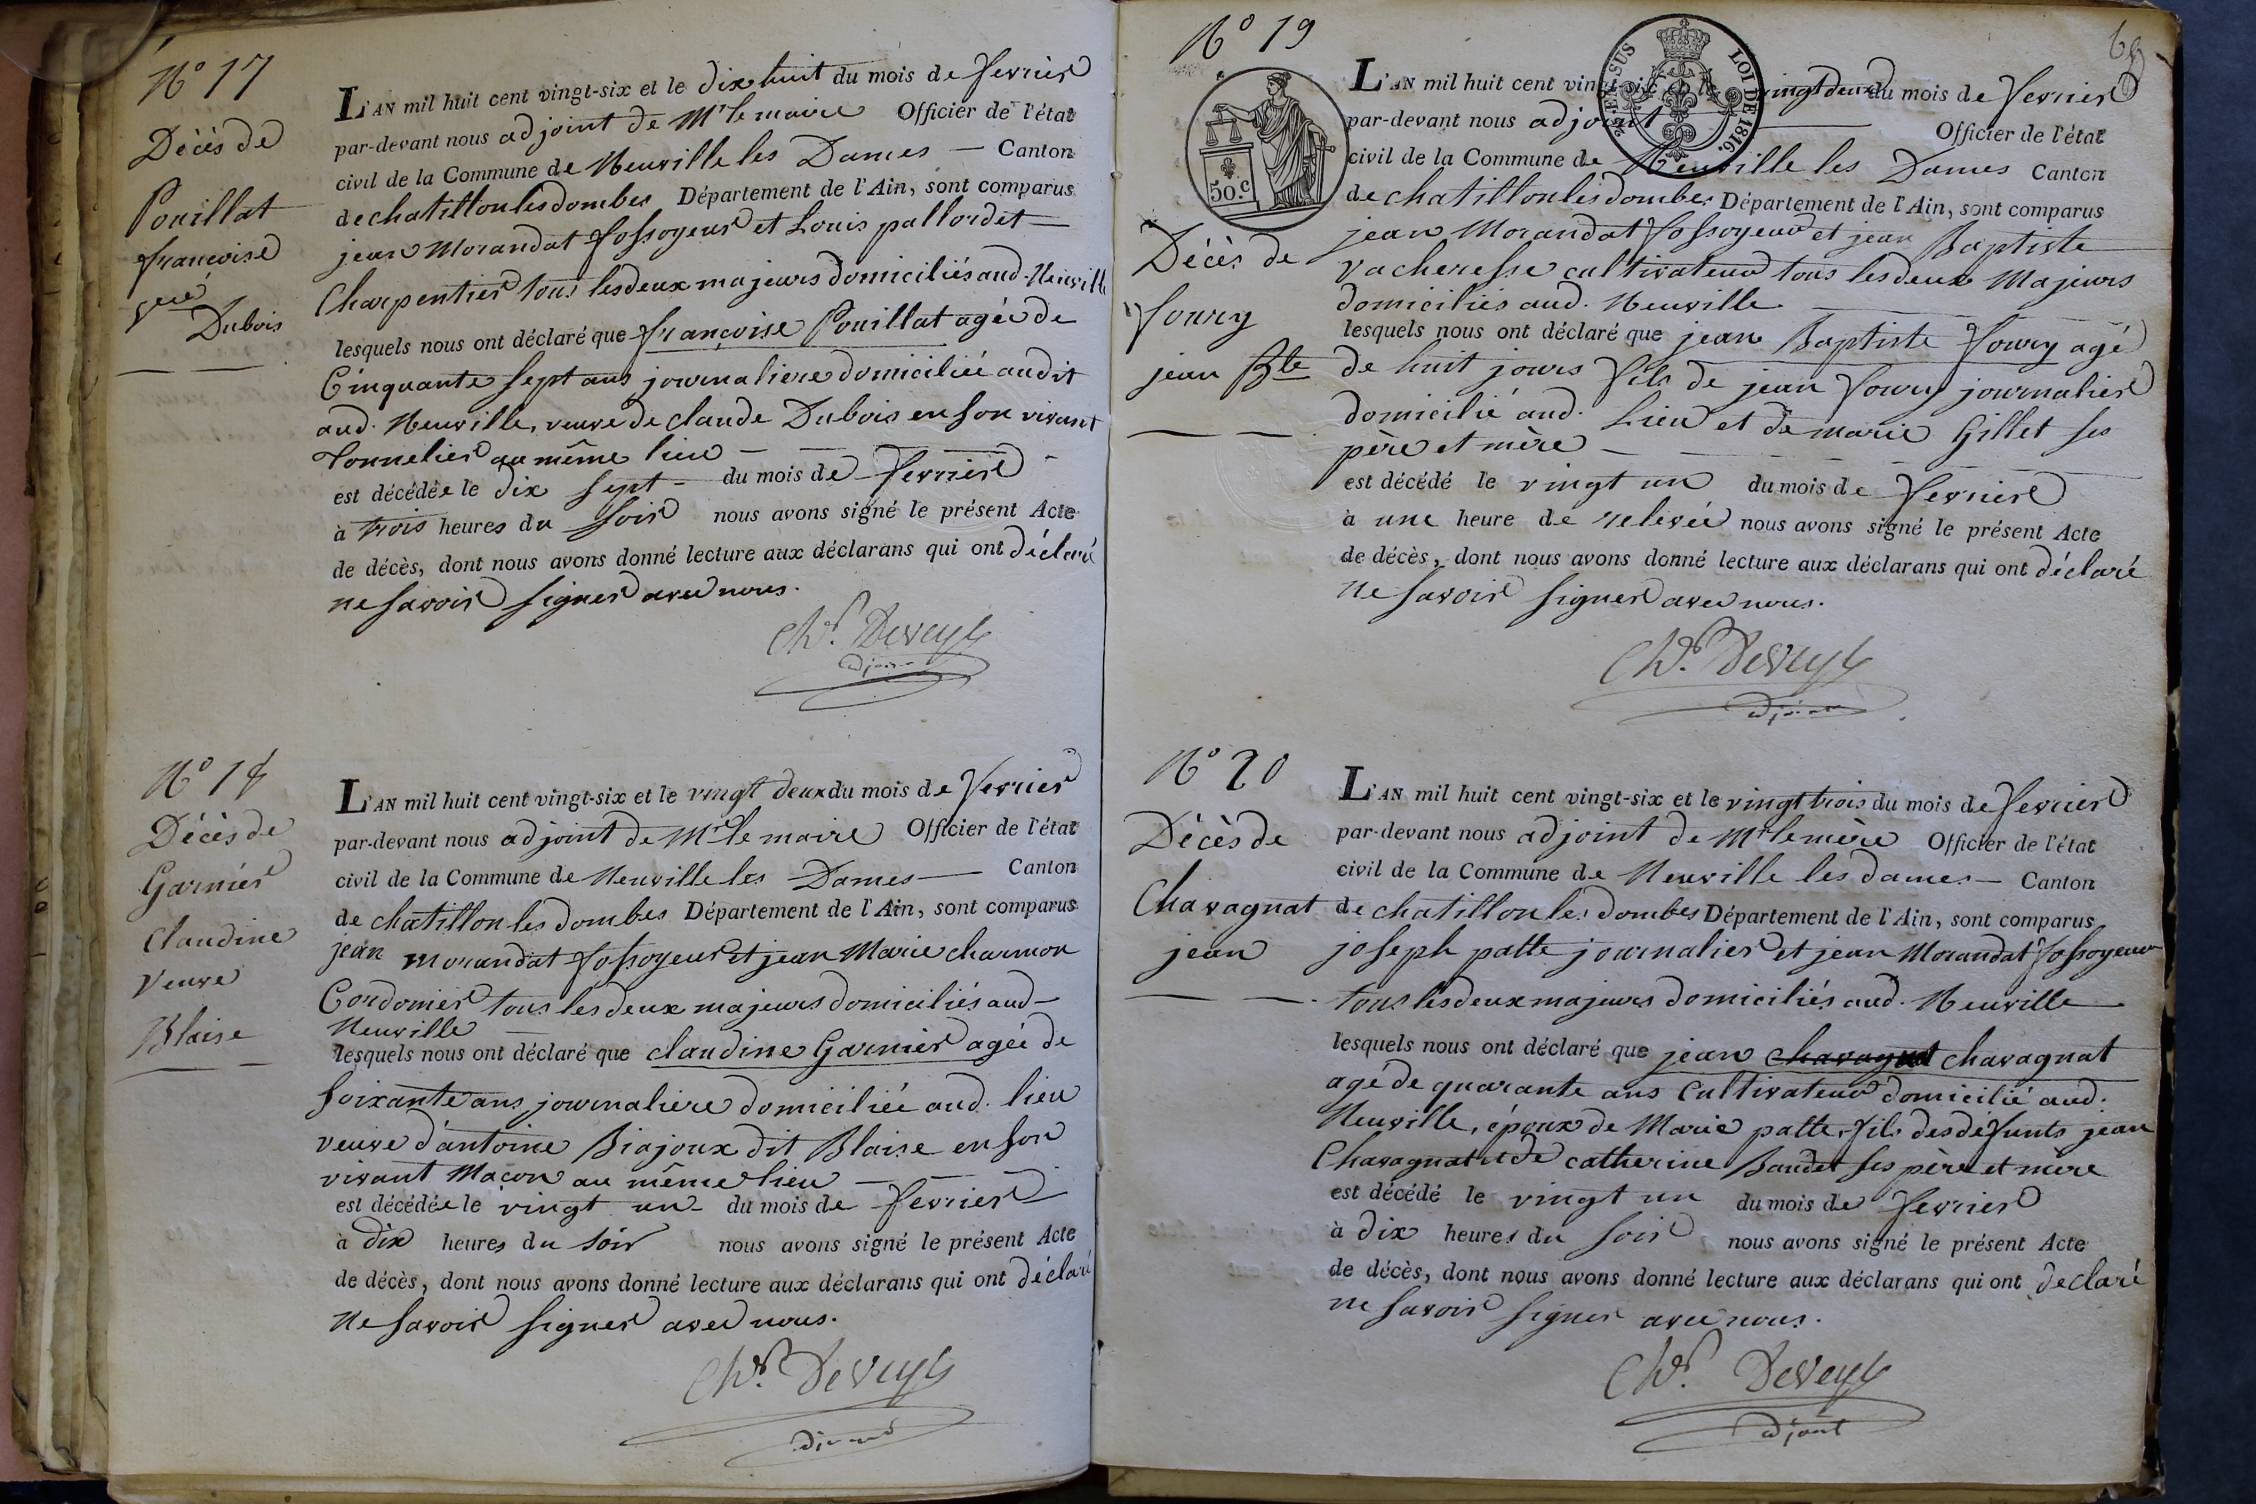 N° 17
Décès de
Pouillat
françoise
veuve
Dubois
L'AN mil huit cent vingt-six et le dix huit du mois de fevrier
par-devant nous adjoint de Mr le maire Officier de l'état
civil de la Commune de Neuville les Dames — Canton
de chatillon les dombes Département de l'Ain, sont comparus
jean Morandat fossoyeur et Louis pallordet
Charpentier tous les deux majeurs domiciliés aud. Neuville
lesquels nous ont déclaré que françoise Pouillat agée de
Cinquante sept ans journaliere domiciliée audit
aud. Neuville, veuve de claude Dubois en son vivant
Tonnelier au même lieu —
est décédée le dix sept du mois de fevrier
à trois heures du soir nous avons signé le présent Acte
de décès, dont nous avons donné lecture aux déclarans qui ont déclaré
ne savoir signer avec nous.
Chr. Deveyle
adjoint
N° 18
Décès de
Garnier
Claudine
Veuve
Blaise
L'AN mil huit cent vingt-six et le vingt deux du mois de fevrier
par-devant nous adjoint de Mr le maire Officier de l'état
civil de la Commune de Neuville les Dames — Canton
de chatillon les dombes Département de l'Ain, sont comparus
jean Morandat fossoyeur et jean Marie charmon
Cordonier tous les deux majeurs domiciliés aud
Neuville
lesquels nous ont déclaré que claudine Garnier agée de
soixante ans, journaliere domiciliée aud. lieu
veuve d'antoine Biajoux dit Blaise en son
vivant Macon au même lieu —
est décédée le vingt un du mois de fevrier
à dix heures du soir nous avons signé le présent Acte
de décès, dont nous avons donné lecture aux déclarans qui ont déclaré
ne savoir signer avec nous.
Chr. Deveyle
adjoint
N° 19
50.c
EN SUS LOI DE 1816.
Décès de
foury
jean Bte
L'AN mil huit cent vingt-six et le vingt deux du mois de fevrier
par-devant nous adjoint Officier de l'état
civil de la Commune de Neuville les Dames Canton
de chatillon les dombes Département de l'Ain, sont comparus
jean Morandat fossoyeur et jean Baptiste
vacheresse cultivateur tous les deux Majeurs
domiciliés aud. Neuville
lesquels nous ont déclaré que jean Baptiste foury agé
de huit jours fils de jean foury journalier
domicilié aud. Lieu et de marie Gillet ses
père et mère —
est décédé le vingt un du mois de fevrier
à une heure de relevée nous avons signé le présent Acte
de décès, dont nous avons donné lecture aux déclarans qui ont déclaré
ne savoir signer avec nous.
Chr. Deveyle
adjoint
N° 20
Décès de
Chavagnat
jean
L'AN mil huit cent vingt-six et le vingt trois du mois de fevrier
par-devant nous adjoint de Mr le mère Officier de l'état
civil de la Commune de Neuville les dames — Canton
de chatillon les dombes Département de l'Ain, sont comparus
joseph patte journalier et jean Morandat fossoyeur
tous les deux majeurs domiciliés aud. Neuville
lesquels nous ont déclaré que jean chavagnat chavagnat
agé de quarante ans Cultivateur domicilié aud.
Neuville, époux de Marie patte, fils des défunts jean
Chavagnat et de catherine Baudet ses père et mère
est décédé le vingt un du mois de fevrier
à dix heures du soir nous avons signé le présent Acte
de décès, dont nous avons donné lecture aux déclarans qui ont declaré
ne savoir signer avec nous.
Chr. Deveyle
adjoint